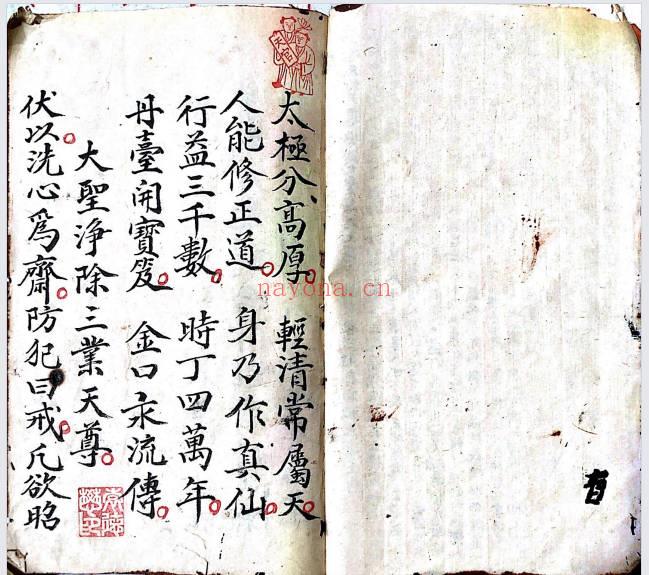 太極分高厚。輕清常屬天。
人能修正道。身乃作真仙。
行益三千數。時丁四萬年。
丹臺開寶笈。金口永流傳。
大聖淨除三業天尊。
伏以。洗心爲齋。防犯曰戒。凡欲昭
nayona.cn